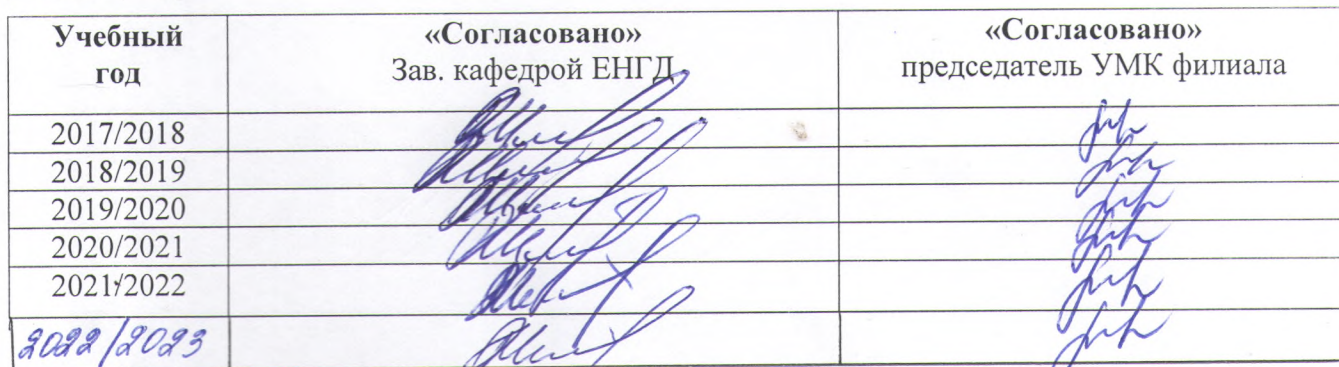 Учебный год
«Согласовано»
Зав. кафедрой ЕНГД
«Согласовано»
председатель УМК филиала
2017/2018
2018/2019
2019/2020
2020/2021
2021/2022
2022/2023